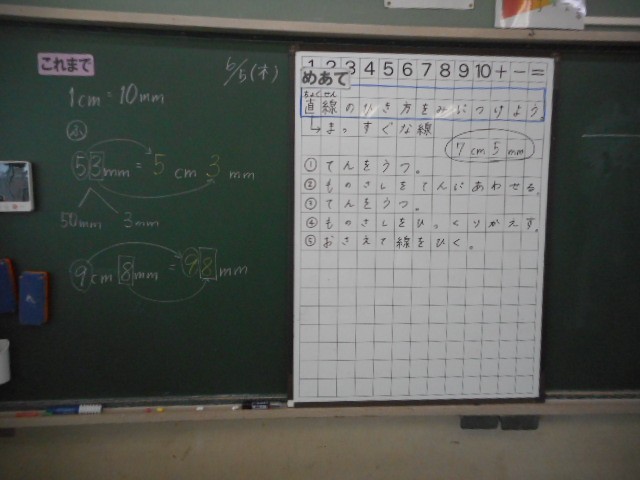 これまで
6/5(木)
1cm=10mm
ふ
53mm=5cm3mm
50mm 3mm
9cm8mm=98mm
1 2 3 4 5 6 7 8 9 10 + - =
めあて
ちょくせん
直線のひき方をみにつけよう。
まっすぐな線
7cm5mm
①てんをうつ。
②ものさしをてんにあわせる。
③てんをうつ。
④ものさしをひっくりかえす。
⑤おさえて線をひく。